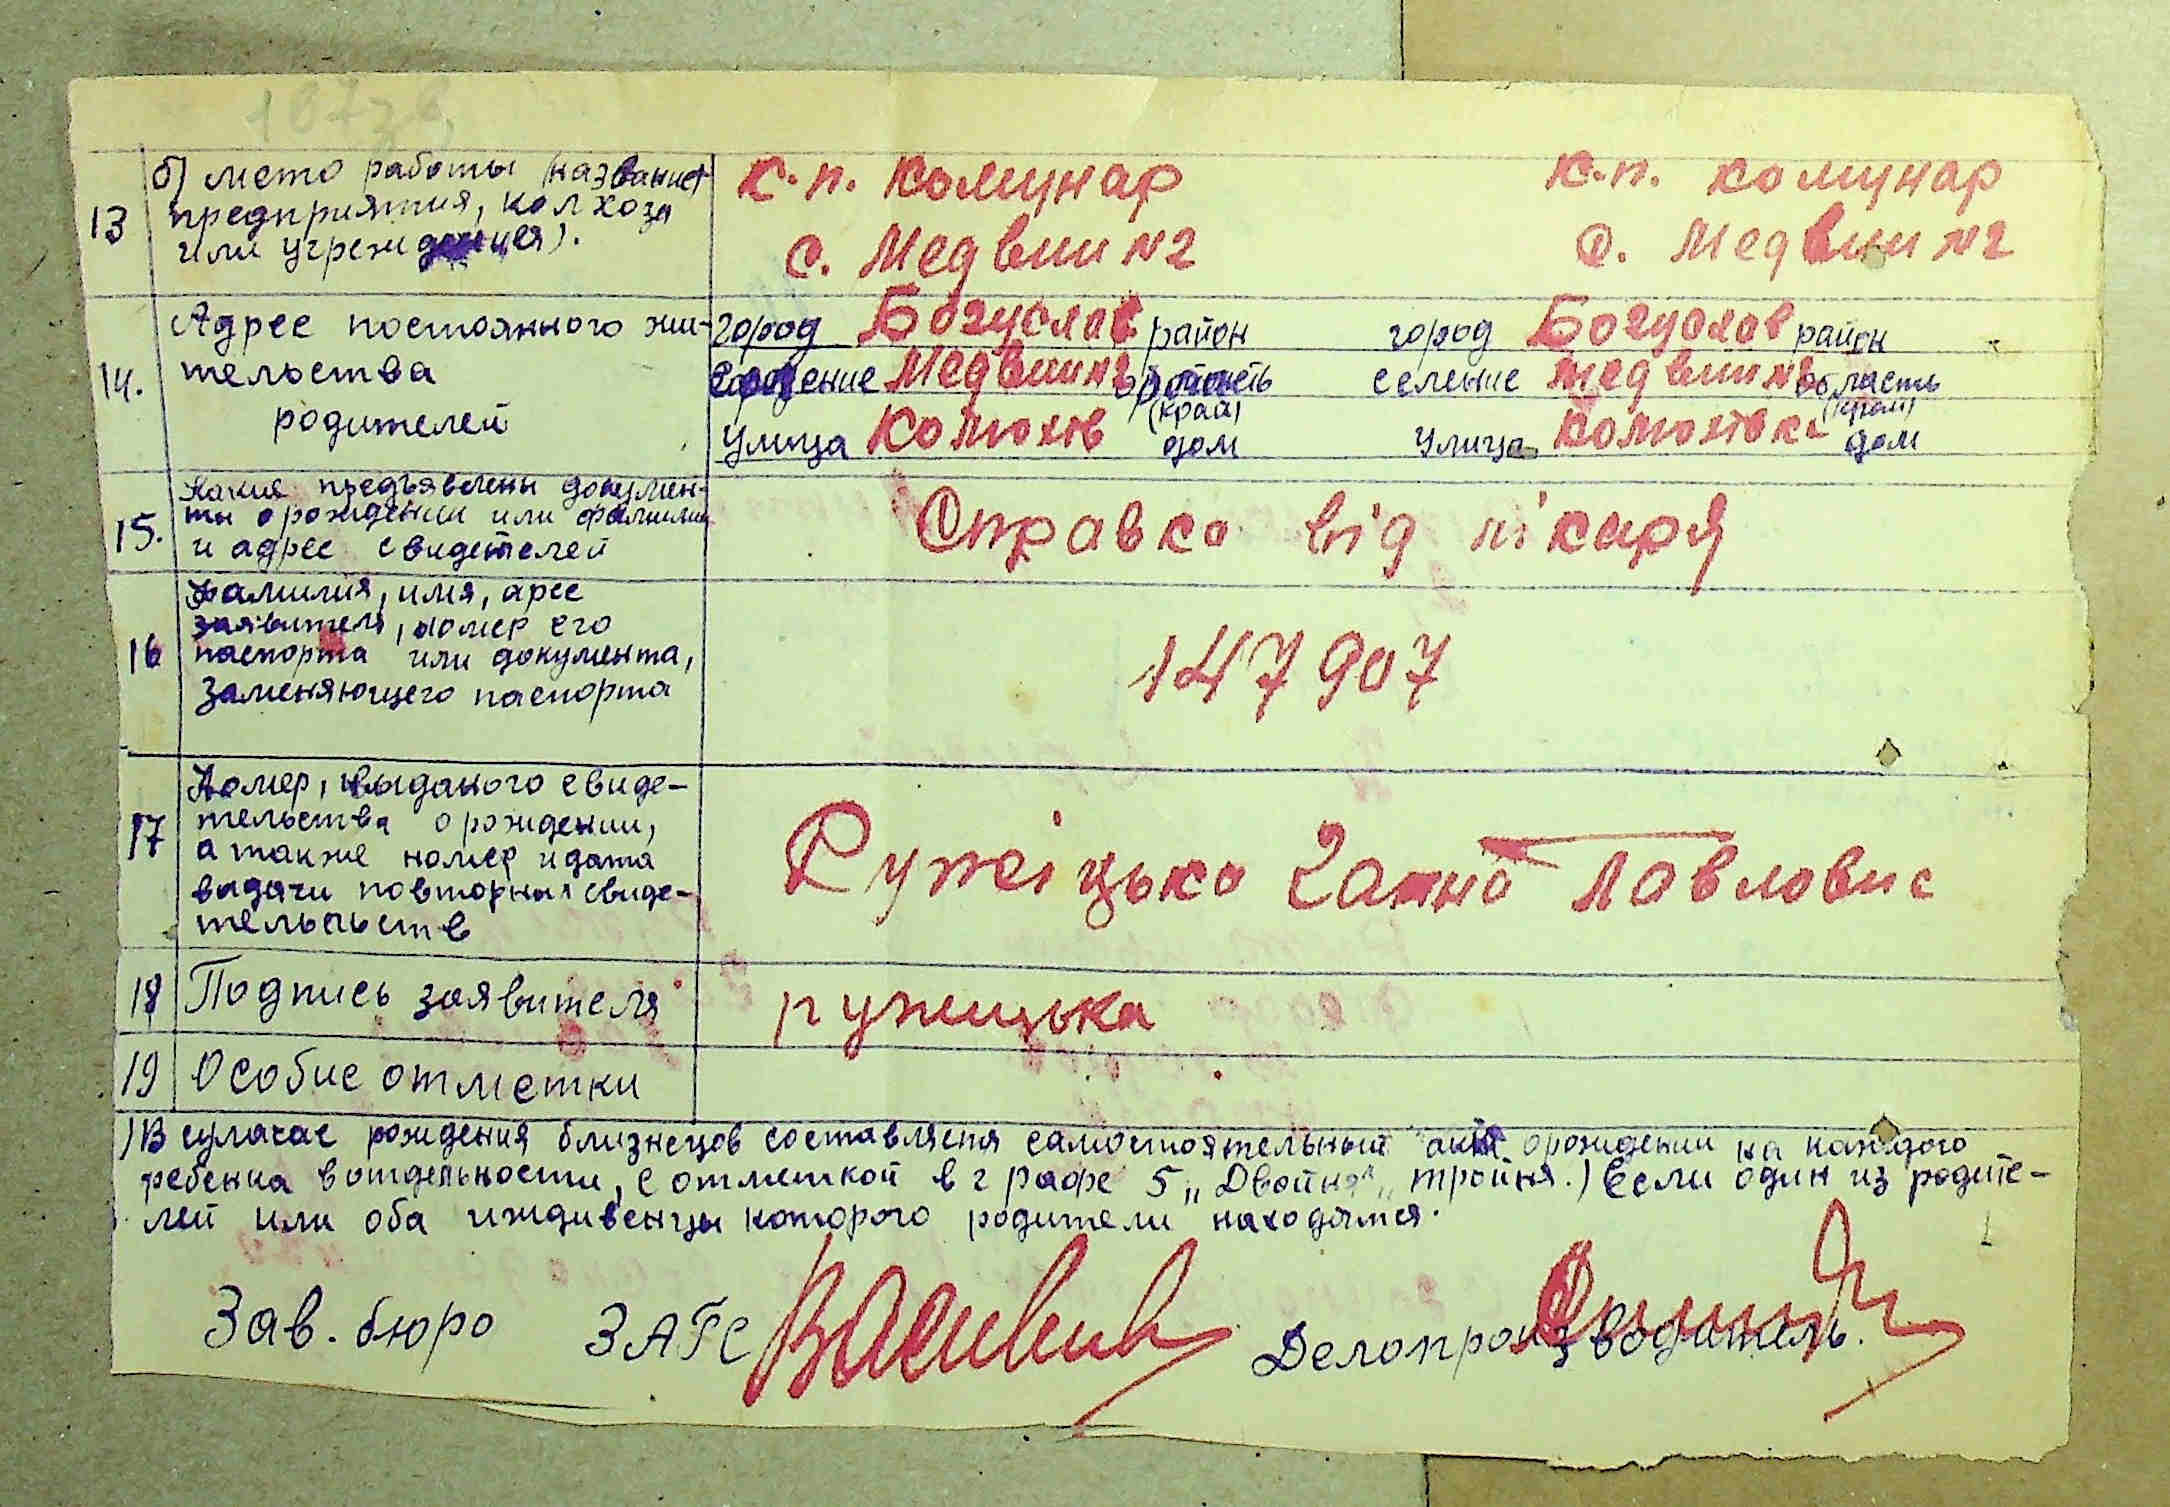 187зв
13
б) место работы (название
предприятия, колхоза
или учреждения).
к.п. комунар
с. Медвин №2
к.п. комунар
с. Медвин №2
14.
Адрес постоянного жи-
тельства
родителей
город Богуслав район
селение Медвин №2 область
(край)
улица дом
город Богуслав район
селение Медвин №2 область
(край)
улица дом
15.
Какие предъявлены докумен-
ты о рождении или фамилии
и адрес свидетелей
Справка від лікаря
16
Фамилия, имя, арес
заявителя, номер его
паспорта или документа,
заменяющего паспорта
147907
17
Номер, выданого свиде-
тельства о рождении,
а также номер и дата
видачи повторных свиде-
тельств
Ружіцька Ганна Павловис
18
Подпись заявителя
ружицька
19
Особие отметки
1) В сулачае рождения близнецов составляетя самостоятельный акт о рождении на каждого
ребенка вотдельности, с отметкой в графе 5 „Двойня" „тройня.) Если один из родите-
лей или оба иждивенцы которого родители находятся.
Зав. бюро ЗАГС
Делопроизводитель.